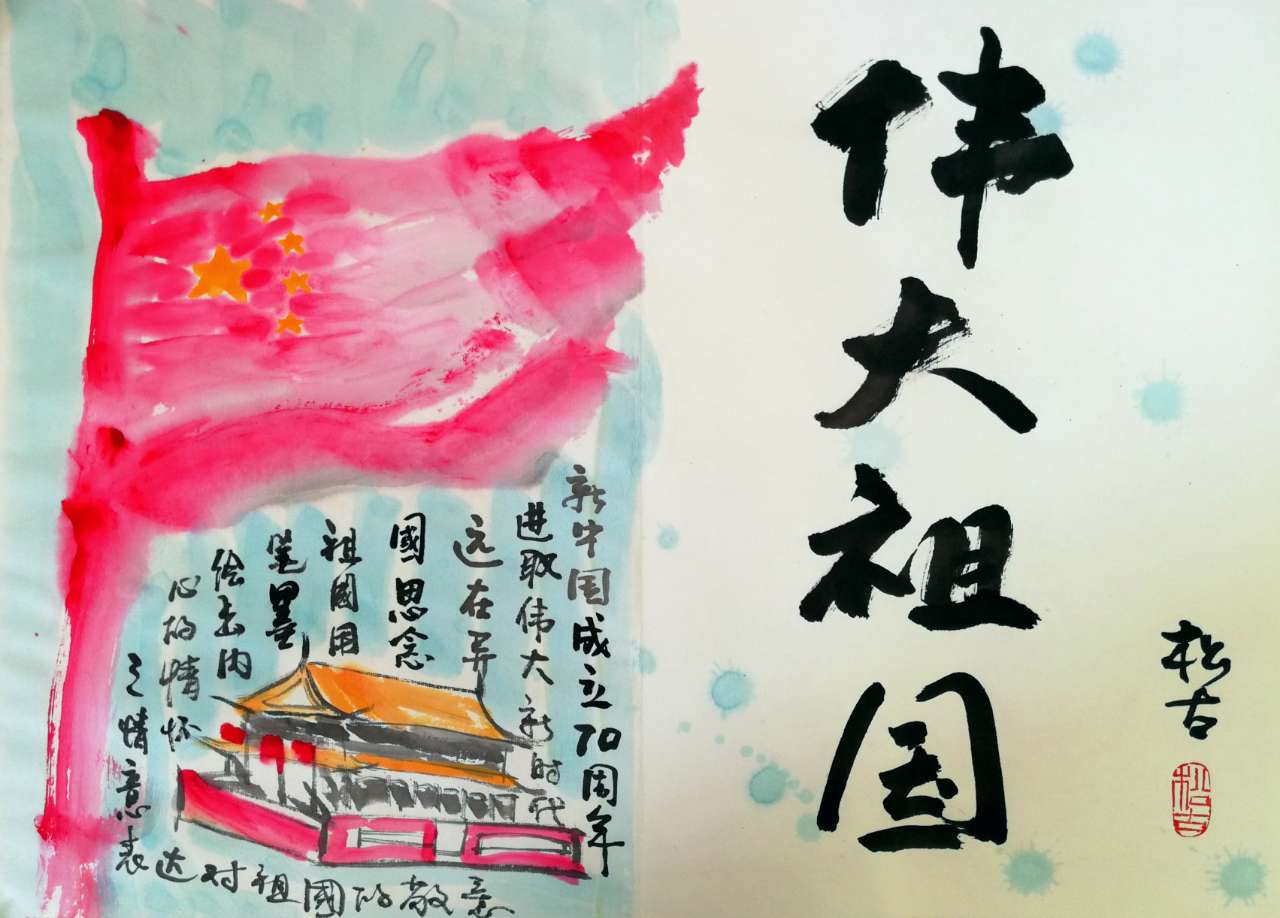 伟大祖国
松古
松古
新中国成立70周年
进取伟大新时代
远在异
國思念
祖國用
笔墨
绘出内
心的情怀
之情意表
达对祖國的敬意